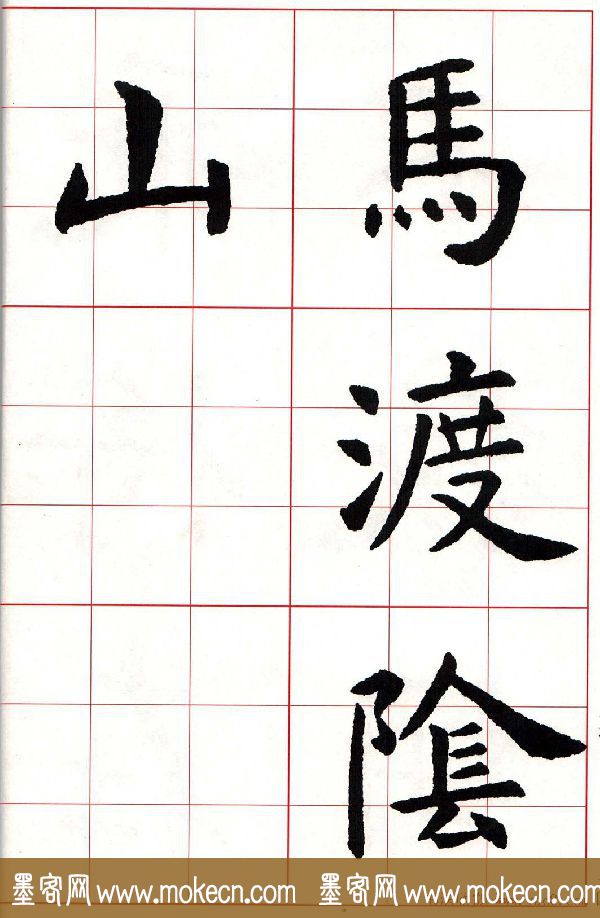 馬渡陰
山
墨客网 www.mokecn.com 墨客网 www.mokecn.com